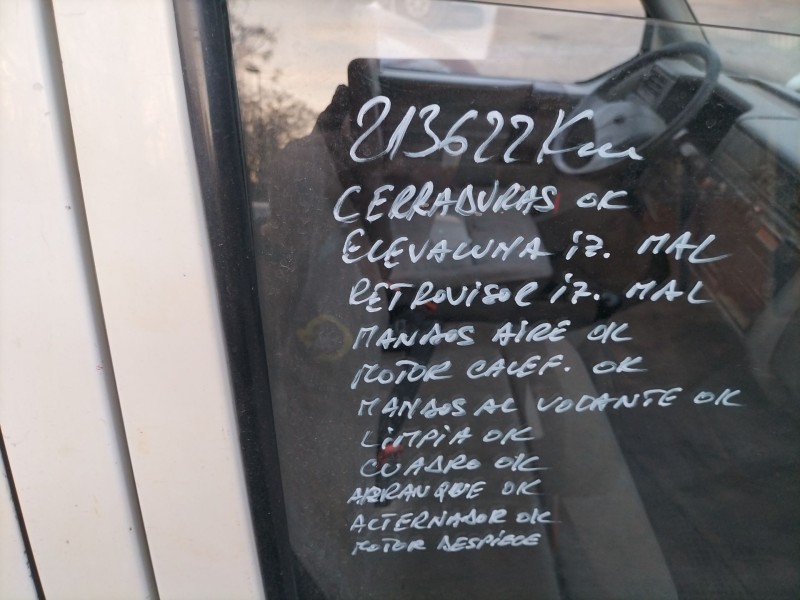 213622 Km
CERRADURAS OK
ELEVALUNA iZ. MAL
RETROVISOR iZ. MAL
MANDOS AIRE OK
MOTOR CALEF. OK
MANDOS AL VODANTE OK
LIMPIA OK
CUADRO OK
ARRANQUE OK
ALTERNADOR OK
MOTOR DESPIECE